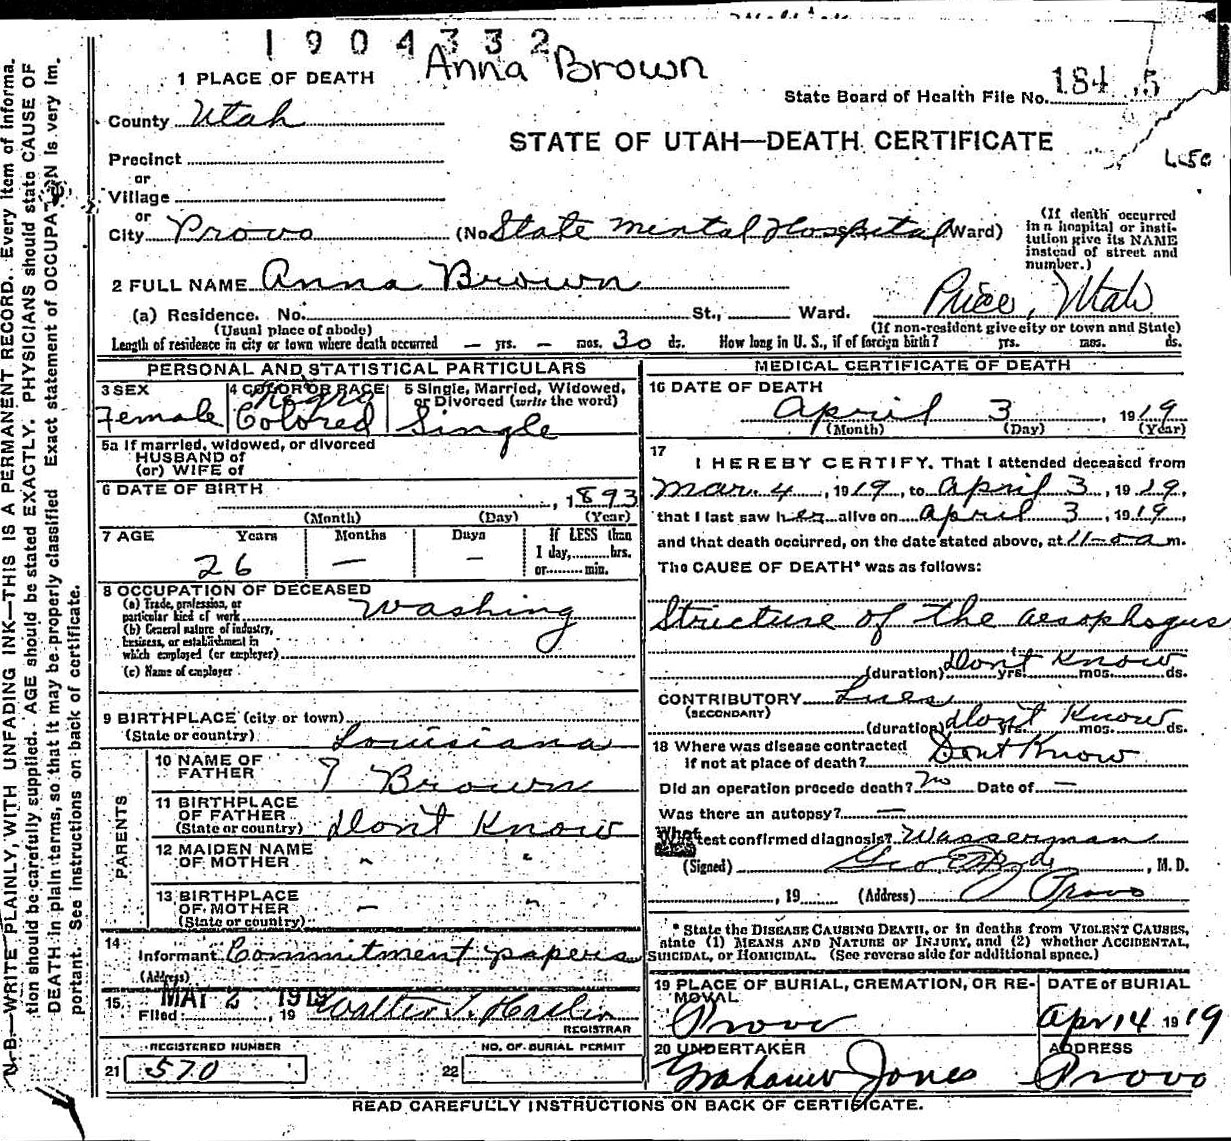 1904332
Anna Brown
1 PLACE OF DEATH
State Board of Health File No. 184 5
County Utah
STATE OF UTAH—DEATH CERTIFICATE
Precinct
or
Village
or
City Provo (No State Mental Hospital Ward)
(If death occurred in a hospital or institution give its NAME instead of street and number.)
2 FULL NAME Anna Brown
Price, Utah
(a) Residence. No. St., Ward.
(Usual place of abode)
(If non-resident give city or town and State)
Length of residence in city or town where death occurred — yrs. — mos. 30 ds. How long in U. S., if of foreign birth? yrs. mos. ds.
PERSONAL AND STATISTICAL PARTICULARS
3 SEX
Female
4 COLOR OR RACE
Negro
Colored
5 Single, Married, Widowed, or Divorced (write the word)
Single
5a If married, widowed, or divorced
HUSBAND of
(or) WIFE of
6 DATE OF BIRTH
, 1893
(Month) (Day) (Year)
7 AGE Years Months Days If LESS than 1 day, hrs. or min.
26 — —
8 OCCUPATION OF DECEASED
(a) Trade, profession, or particular kind of work Washing
(b) General nature of industry, business, or establishment in which employed (or employer)
(c) Name of employer
9 BIRTHPLACE (city or town)
(State or country) Louisiana
PARENTS
10 NAME OF FATHER ? Brown
11 BIRTHPLACE OF FATHER (State or country) Don't Know
12 MAIDEN NAME OF MOTHER
13 BIRTHPLACE OF MOTHER (State or country) —
14
Informant Commitment papers
(Address)
15 MAY 2 1919
Filed , 19 Walter T. Hasler
REGISTRAR
REGISTERED NUMBER NO. OF BURIAL PERMIT
21 570 22
MEDICAL CERTIFICATE OF DEATH
16 DATE OF DEATH
April 3, 1919
(Month) (Day) (Year)
17
I HEREBY CERTIFY, That I attended deceased from
Mar. 4, 1919, to April 3, 1919,
that I last saw her alive on April 3, 1919,
and that death occurred, on the date stated above, at 11-00 a m.
The CAUSE OF DEATH* was as follows:
Stricture of the aesophogus
(duration) Don't Know yrs. mos. ds.
CONTRIBUTORY Lues
(SECONDARY)
(duration) Don't Know yrs. mos. ds.
18 Where was disease contracted
If not at place of death? Dont Know
Did an operation precede death? no Date of —
Was there an autopsy? —
What test confirmed diagnosis? Wasserman
(Signed) Geo E Hyde, M. D.
, 19 (Address) Provo
* State the DISEASE CAUSING DEATH, or in deaths from VIOLENT CAUSES, state (1) MEANS AND NATURE OF INJURY, and (2) whether ACCIDENTAL, SUICIDAL, or HOMICIDAL. (See reverse side for additional space.)
19 PLACE OF BURIAL, CREMATION, OR REMOVAL
Provo
DATE of BURIAL
Apr 14 1919
20 UNDERTAKER
Grahame Jones
ADDRESS
Provo
READ CAREFULLY INSTRUCTIONS ON BACK OF CERTIFICATE.
N. B.—WRITE PLAINLY, WITH UNFADING INK—THIS IS A PERMANENT RECORD. Every item of information should be carefully supplied. AGE should be stated EXACTLY. PHYSICIANS should state CAUSE OF DEATH in plain terms, so that it may be properly classified Exact statement of OCCUPATION is very important. See instructions on back of certificate.